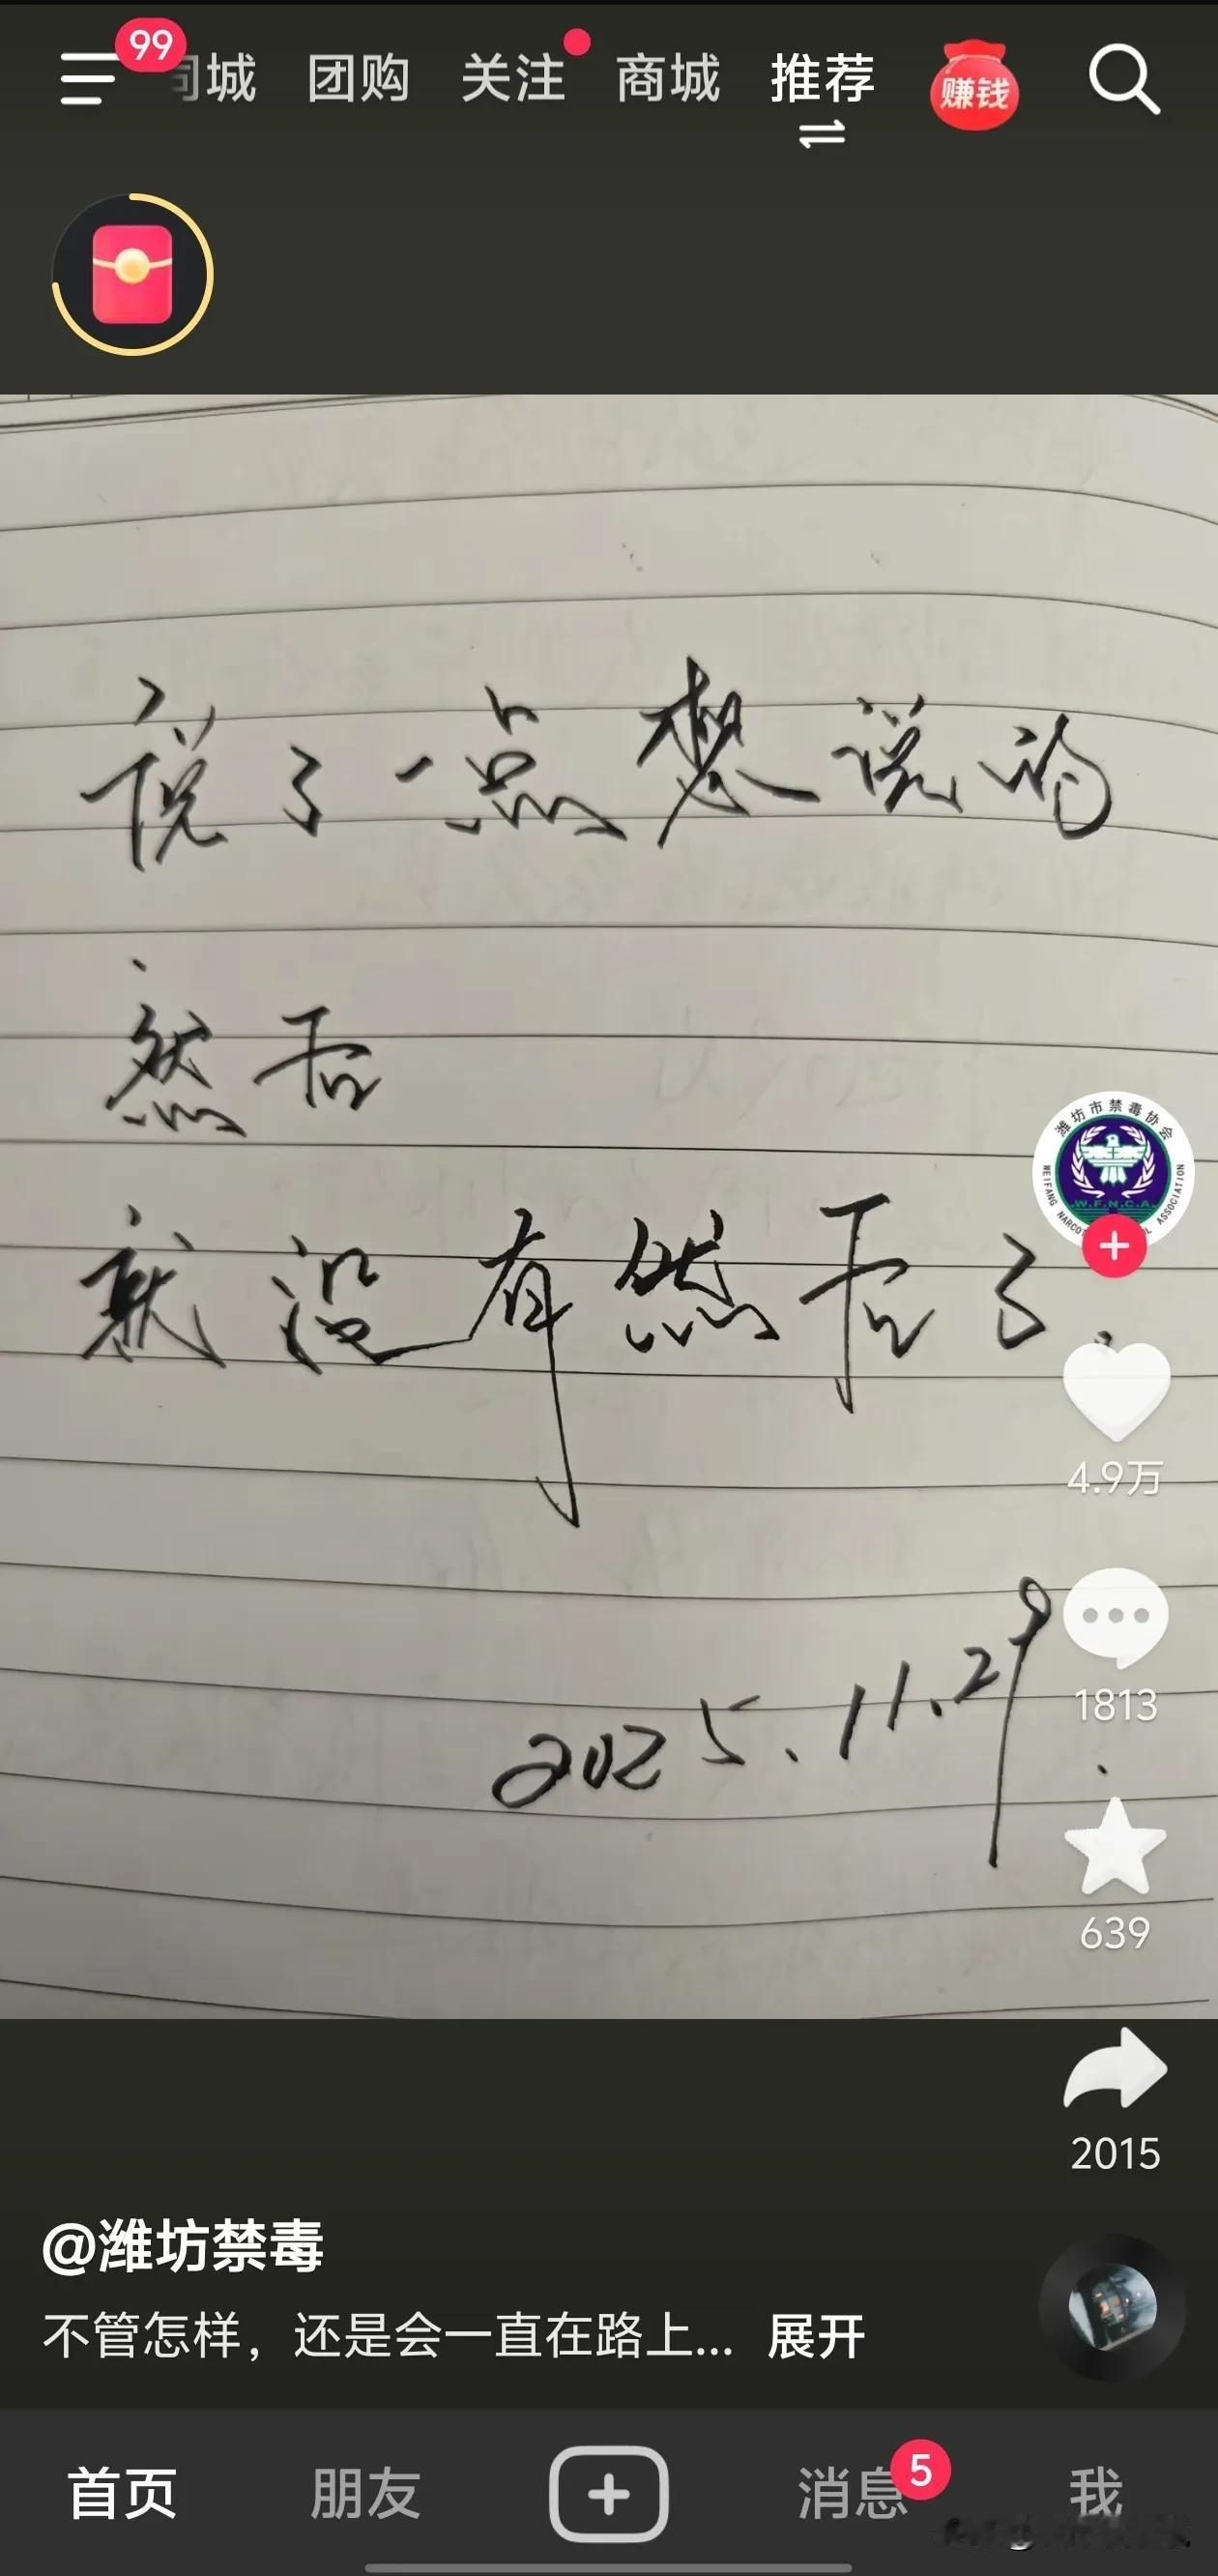 99
同城 团购 关注 商城 推荐 赚钱
说了一点想说的
然后
就没有然后了.
2025.11.29
潍坊市禁毒协会
W.F.N.C.A.
WEIFANG NARCOT L ASSOCIATION
4.9万
1813
639
2015
@潍坊禁毒
不管怎样，还是会一直在路上... 展开
首页 朋友 消息 5 我